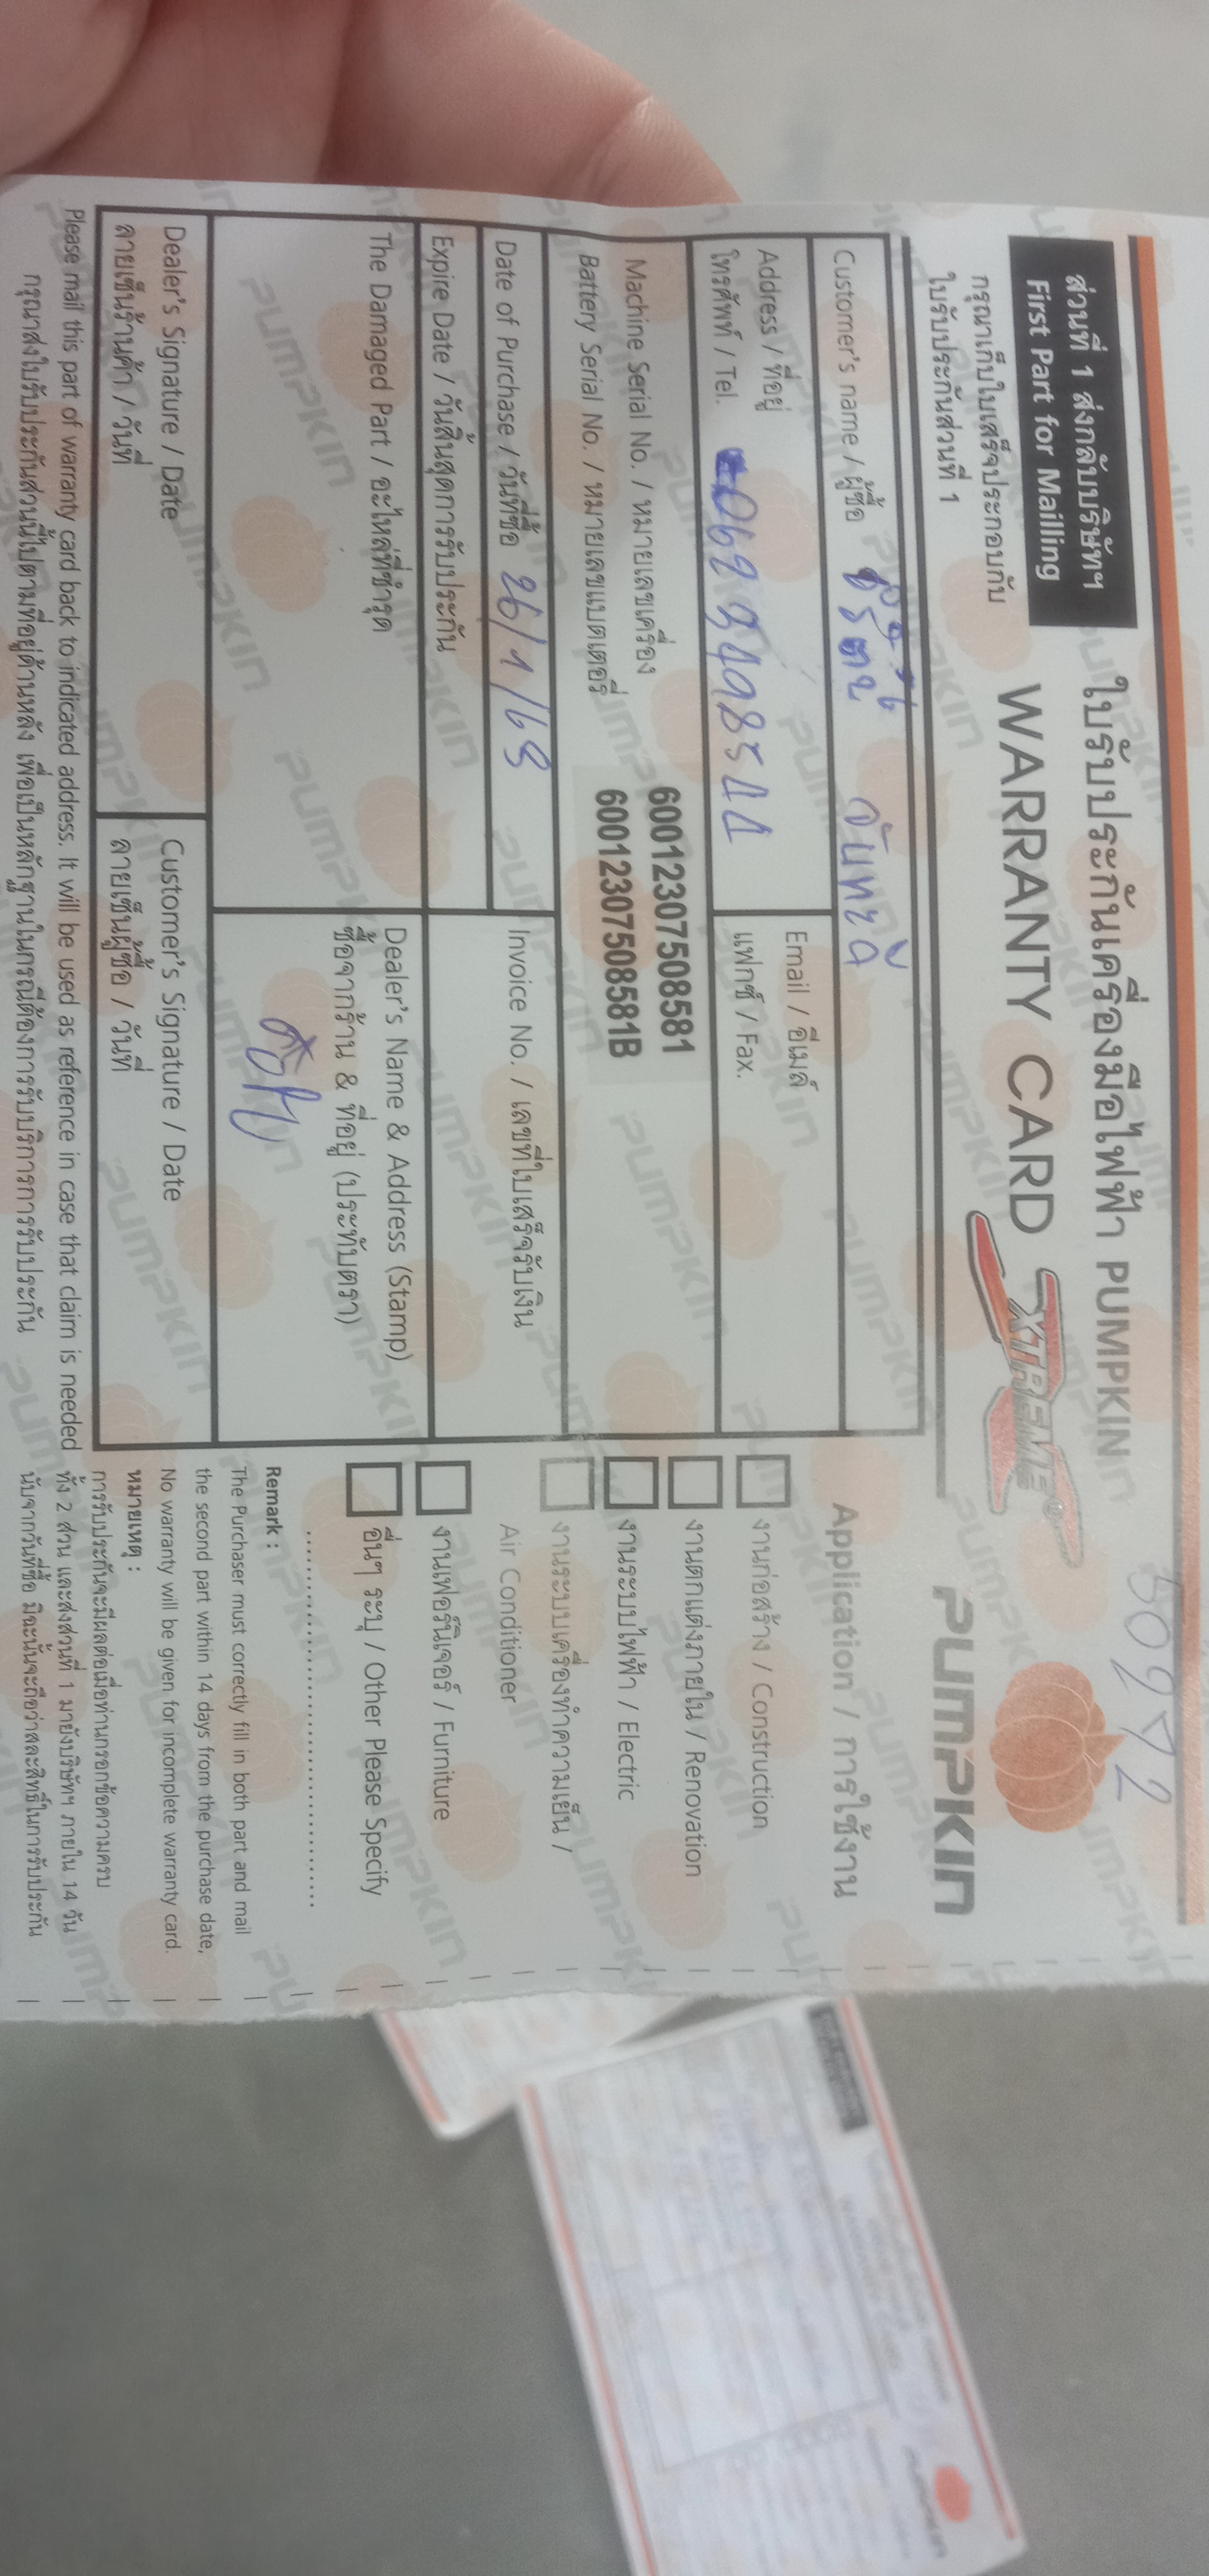 50972
ส่วนที่ 1 ส่งกลับบริษัทฯ
First Part for Mailling
ใบรับประกันเครื่องมือไฟฟ้า PUMPKIN
WARRANTY CARD
XTREME
PUMPKIN
กรุณาเก็บใบเสร็จประกอบกับ
ใบรับประกันส่วนที่ 1
Customer's name / ผู้ซื้อ
Address / ที่อยู่
Email / อีเมล์
โทรศัพท์ / Tel.
แฟกซ์ / Fax.
Machine Serial No. / หมายเลขเครื่อง 60012307508581
Battery Serial No. / หมายเลขแบตเตอรี่ 60012307508581B
Date of Purchase / วันที่ซื้อ 26/1/69
Invoice No. / เลขที่ใบเสร็จรับเงิน
Expire Date / วันสิ้นสุดการรับประกัน
The Damaged Part / อะไหล่ที่ชำรุด
Dealer's Name & Address (Stamp)
ชื่อจากร้าน & ที่อยู่ (ประทับตรา)
Dealer's Signature / Date
ลายเซ็นร้านค้า / วันที่
Customer's Signature / Date
ลายเซ็นผู้ซื้อ / วันที่
Please mail this part of warranty card back to indicated address. It will be used as reference in case that claim is needed
กรุณาส่งใบรับประกันส่วนนี้ไปตามที่อยู่ด้านหลัง เพื่อเป็นหลักฐานในกรณีต้องการรับบริการการรับประกัน
Application / การใช้งาน
งานก่อสร้าง / Construction
งานตกแต่งภายใน / Renovation
งานระบบไฟฟ้า / Electric
งานระบบเครื่องทำความเย็น /
Air Conditioner
งานเฟอร์นิเจอร์ / Furniture
อื่นๆ ระบุ / Other Please Specify
Remark :
The Purchaser must correctly fill in both part and mail
the second part within 14 days from the purchase date,
No warranty will be given for incomplete warranty card.
หมายเหตุ :
การรับประกันจะมีผลต่อเมื่อท่านกรอกข้อความครบ
ทั้ง 2 ส่วน และส่งส่วนที่ 1 มายังบริษัทฯ ภายใน 14 วัน
นับจากวันที่ซื้อ มิฉะนั้นจะถือว่าสละสิทธิ์ในการรับประกัน